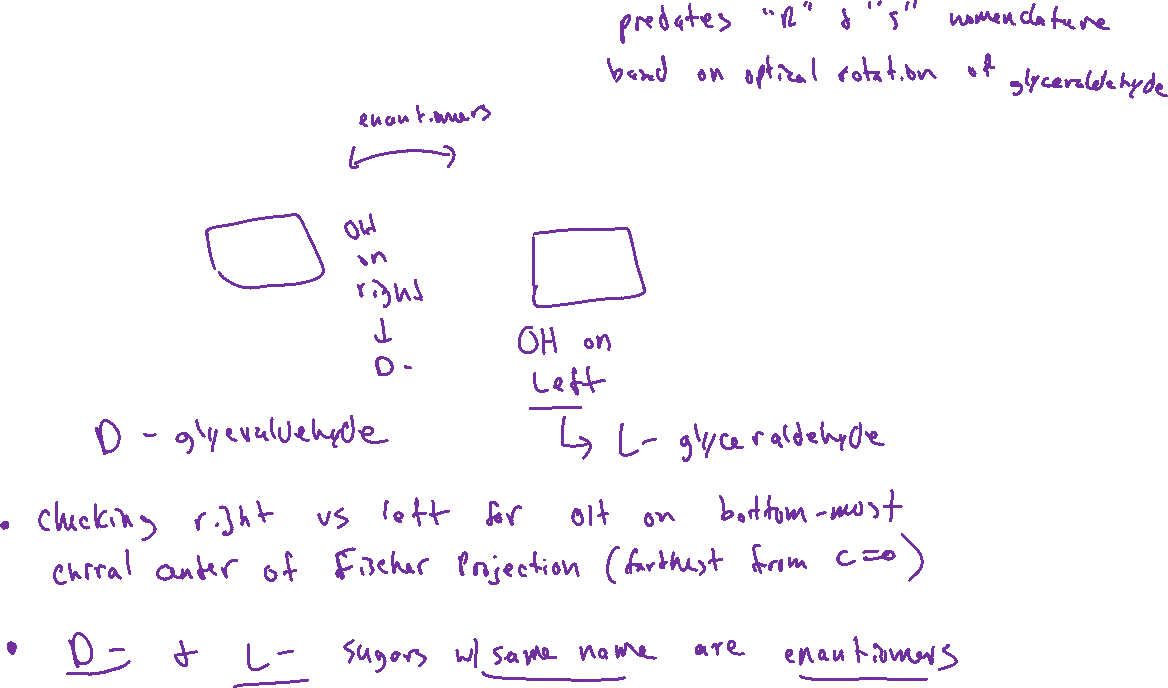 predates "R" & "S" nomenclature
based on optical rotation of glyceraldehyde
enantiomers
OH
on
right
↓
D-
OH on
Left
D - glyceraldehyde
↳ L- glyceraldehyde
• checking right vs left for OH on bottom-most
chiral center of Fischer Projection (farthest from C=O)
• D- & L- sugars w/ same name are enantiomers